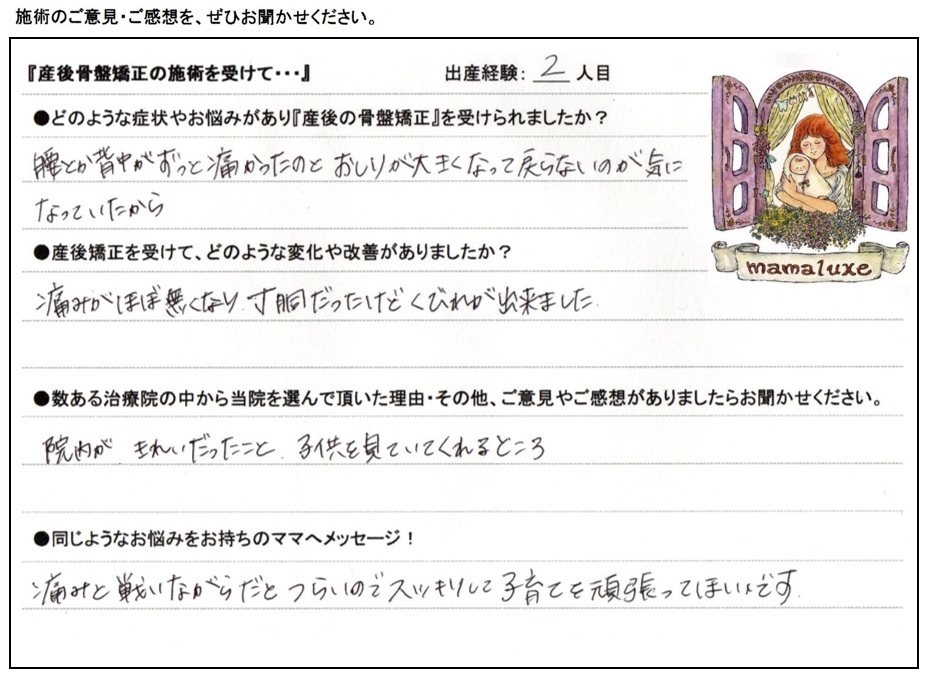 施術のご意見・ご感想を、ぜひお聞かせください。
『産後骨盤矯正の施術を受けて・・・』 出産経験： 2 人目
●どのような症状やお悩みがあり『産後の骨盤矯正』を受けられましたか？
腰とか背中がずっと痛かったのと おしりが大きくなって戻らないのが気に
なっていたから
●産後矯正を受けて、どのような変化や改善がありましたか？
痛みがほぼ無くなり、寸胴だったけどくびれが出来ました
mamaluxe
●数ある治療院の中から当院を選んで頂いた理由・その他、ご意見やご感想がありましたらお聞かせください。
院内が きれいだったこと、子供を見ていてくれるところ
●同じようなお悩みをお持ちのママへメッセージ！
痛みと戦いながらだと つらいのでスッキリして子育てを頑張ってほしいです